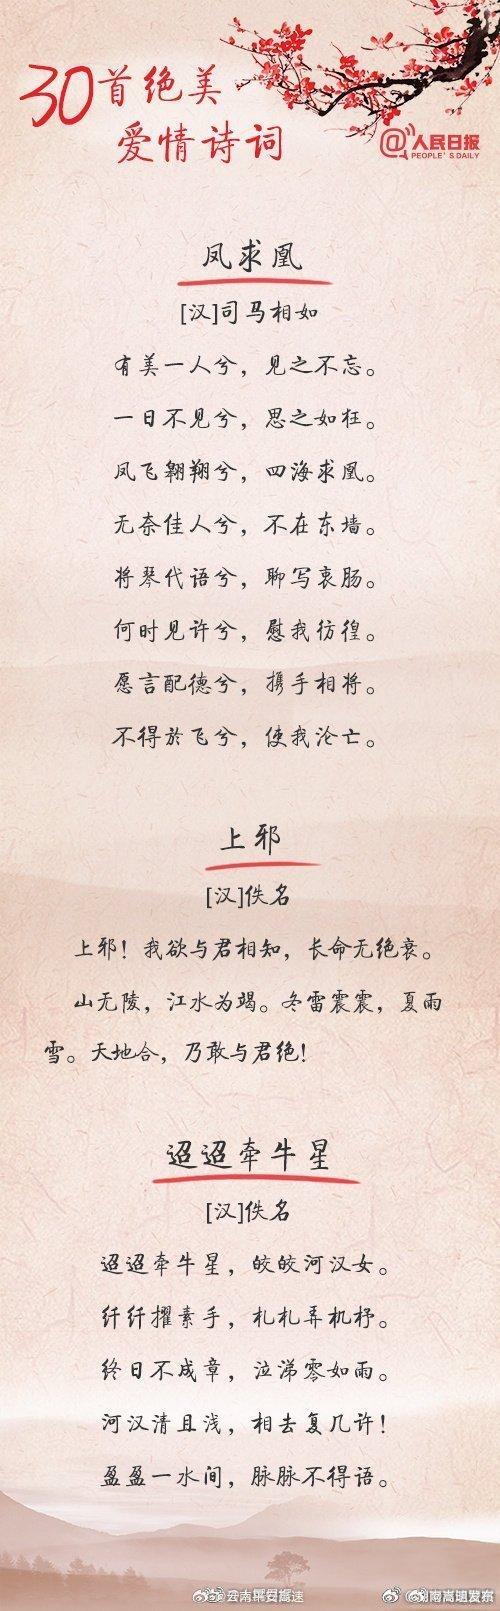 30首绝美
爱情诗词
@人民日报
PEOPLE'S DAILY
凤求凰
[汉]司马相如
有美一人兮，见之不忘。
一日不见兮，思之如狂。
凤飞翱翔兮，四海求凰。
无奈佳人兮，不在东墙。
将琴代语兮，聊写衷肠。
何时见许兮，慰我彷徨。
愿言配德兮，携手相将。
不得於飞兮，使我沦亡。
上邪
[汉]佚名
上邪！我欲与君相知，长命无绝衰。
山无陵，江水为竭。冬雷震震，夏雨
雪。天地合，乃敢与君绝！
迢迢牵牛星
[汉]佚名
迢迢牵牛星，皎皎河汉女。
纤纤擢素手，札札弄机杼。
终日不成章，泣涕零如雨。
河汉清且浅，相去复几许！
盈盈一水间，脉脉不得语。